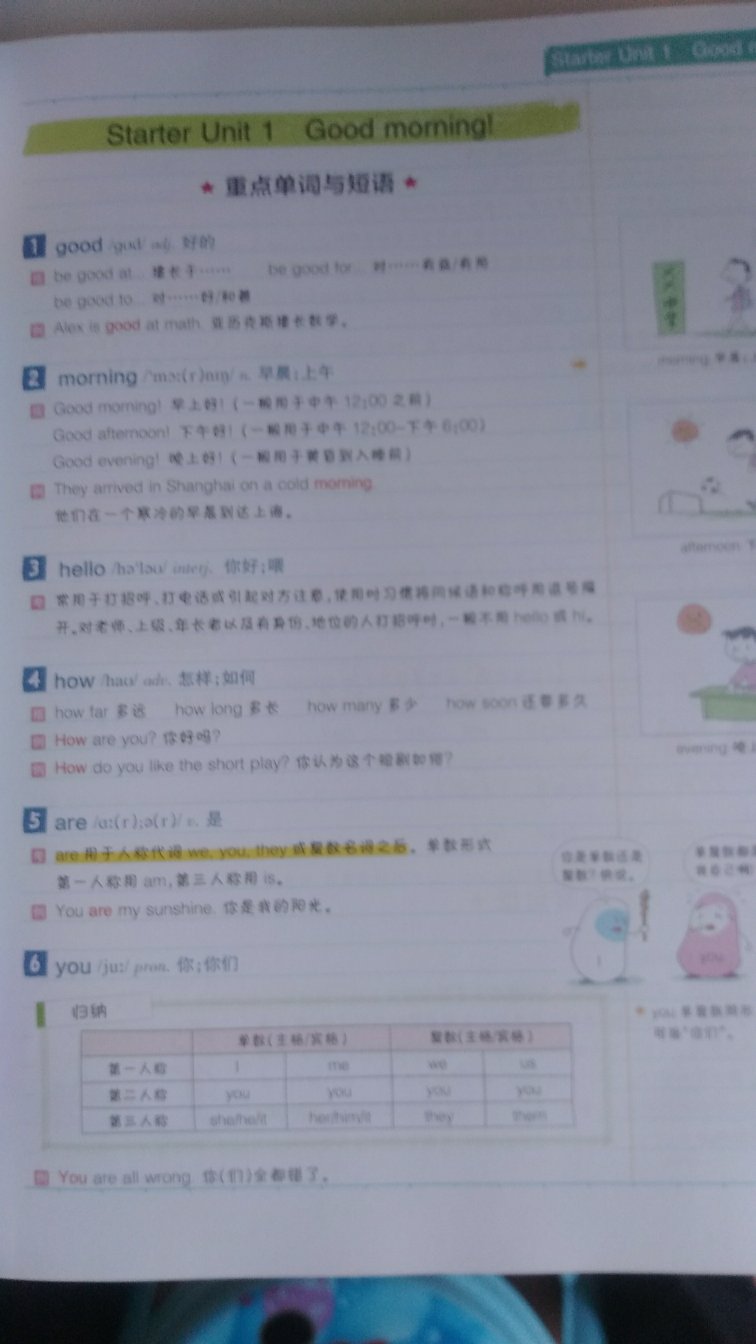 Starter Unit 1 Good
Starter Unit 1 Good morning!
★ 重点单词与短语 ★
1 good /gʊd/ adj. 好的
be good at... 擅长于…… be good for... 对……有益/有用
be good to... 对……好/和善
例 Alex is good at math. 亚历克斯擅长数学。
2 morning /ˈmɔː(r)nɪŋ/ n. 早晨;上午
Good morning! 早上好!(一般用于中午 12:00 之前)
Good afternoon! 下午好!(一般用于中午 12:00–下午 6:00)
Good evening! 晚上好!(一般用于黄昏到入睡前)
例 They arrived in Shanghai on a cold morning.
他们在一个寒冷的早晨到达上海。
3 hello /həˈləʊ/ interj. 你好;喂
常用于打招呼、打电话或引起对方注意,使用时习惯将问候语和称呼用逗号隔
开。对老师、上级、年长者以及有身份、地位的人打招呼时,一般不用 hello 或 hi。
4 how /haʊ/ adv. 怎样;如何
how far 多远 how long 多长 how many 多少 how soon 还要多久
例 How are you? 你好吗?
例 How do you like the short play? 你认为这个短剧如何?
5 are /ɑː(r);ə(r)/ v. 是
are 用于人称代词 we, you, they 或复数名词之后。单数形式
第一人称用 am,第三人称用 is。
例 You are my sunshine. 你是我的阳光。
6 you /juː/ pron. 你;你们
归纳
单数(主格/宾格) 复数(主格/宾格)
第一人称 I me we us
第二人称 you you you you
第三人称 she/he/it her/him/it they them
例 You are all wrong. 你(们)全都错了。
morning 早晨;上
afternoon 下
evening 晚上
你是单数还是
复数?快说。
I
you
you 单复数同形